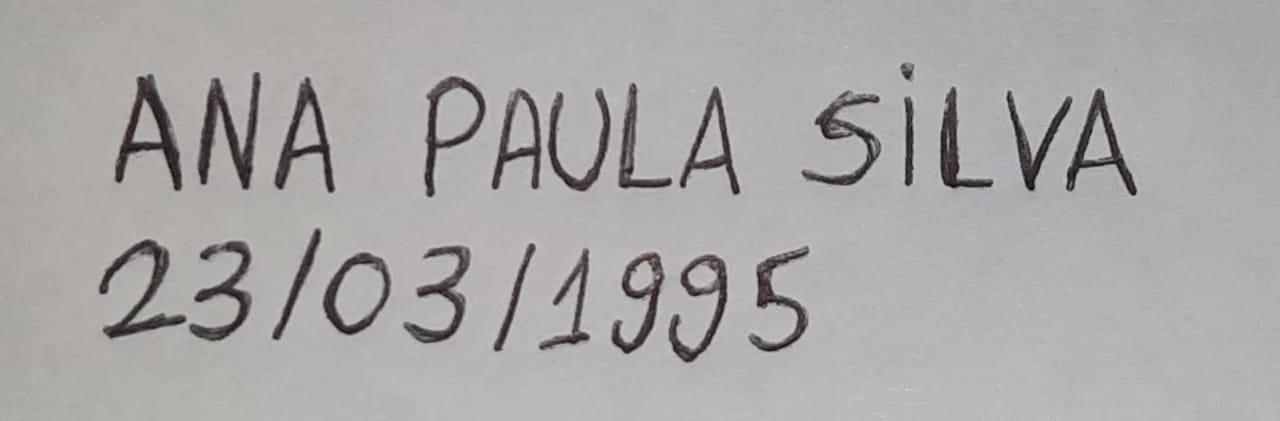 ANA PAULA SiLVA
23/03/1995